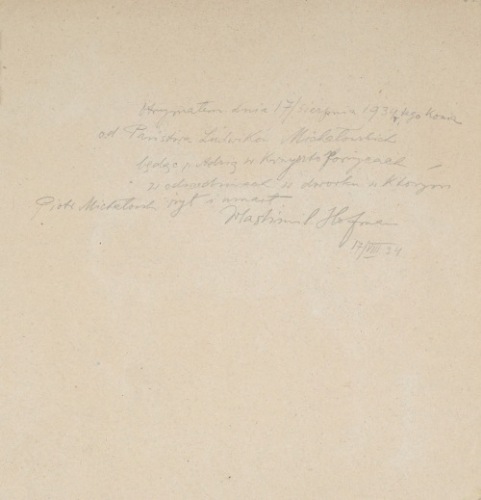 Otrzymałem dnia 17/sierpnia 1934 tego konia
od Państwa Ludwików Michałowskich
będąc z Adasią w Krzyżtoforzycach
w odwiedzinach w dworku w którym
Piotr Michałowsk żył i umarł
Wlastimil Hofman
17/VIII 34